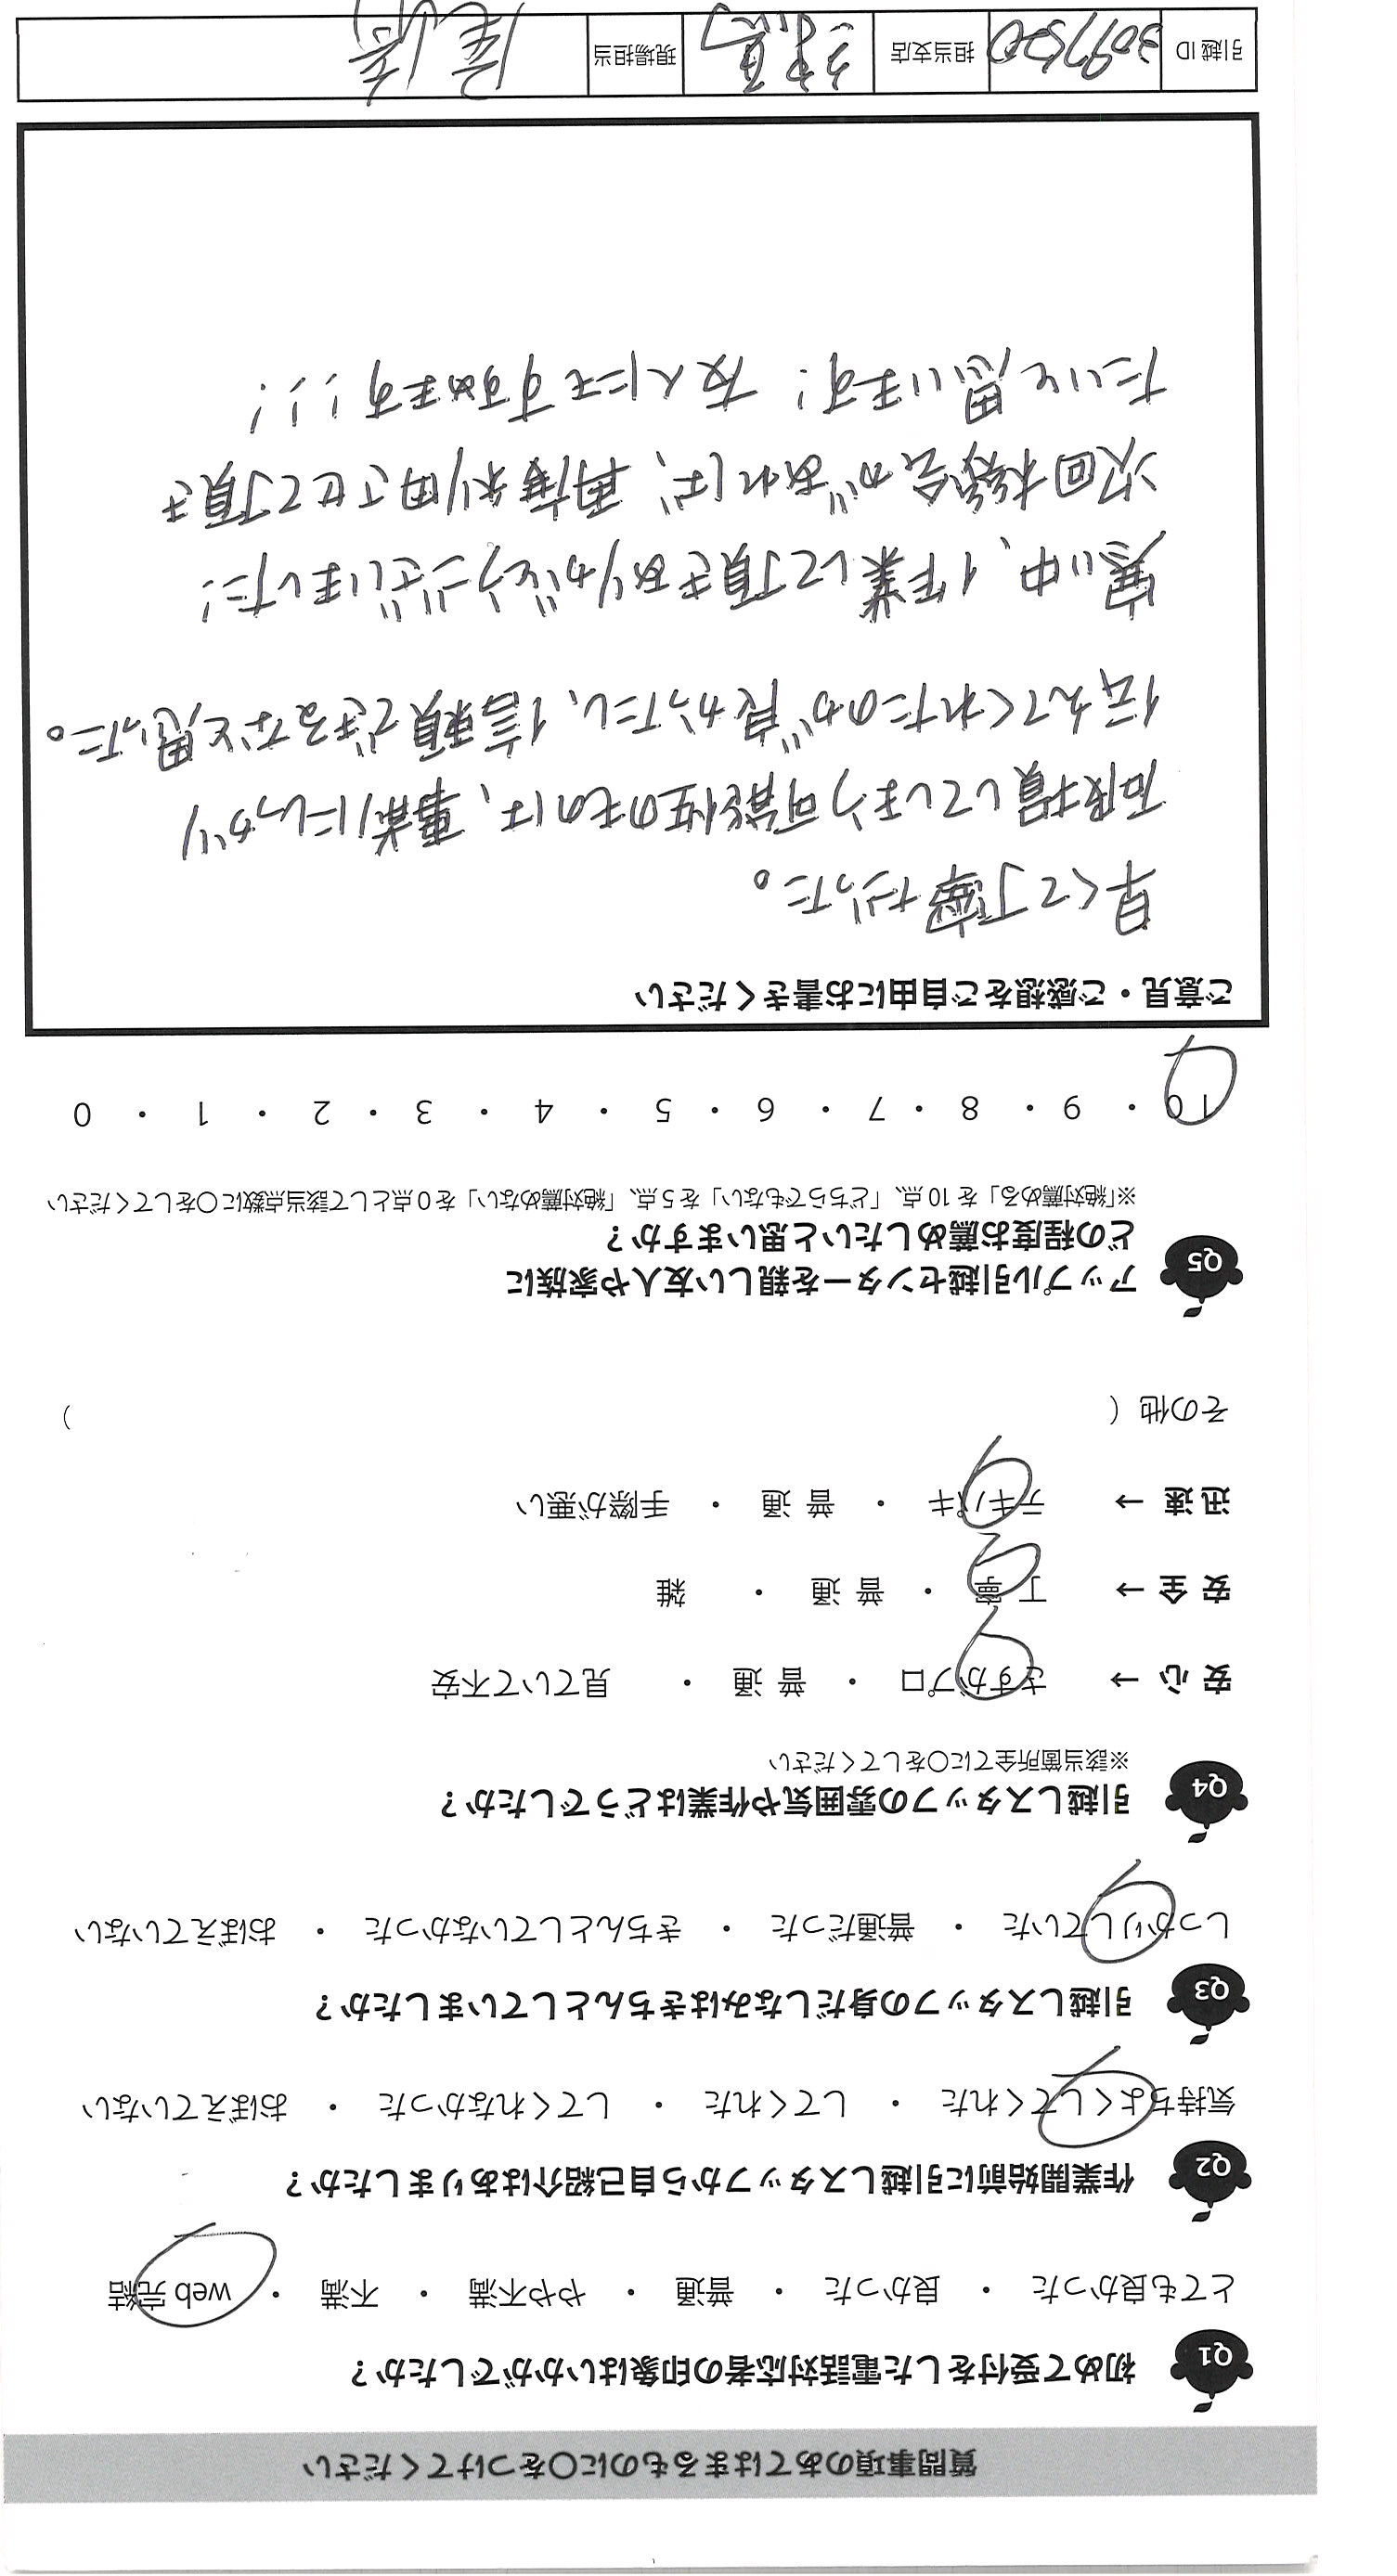 質問事項のあてはまるものに〇をつけてください
Q1 初めて受付をした電話対応者の印象はいかがでしたか？
とても良かった ・ 良かった ・ 普通 ・ やや不満 ・ 不満 ・ web 完結
Q2 作業開始前に引越しスタッフから自己紹介はありましたか？
気持ちよくしてくれた ・ してくれた ・ してくれなかった ・ おぼえていない
Q3 引越しスタッフの身だしなみはきちんとしていましたか？
しっかりしていた ・ 普通だった ・ きちんとしていなかった ・ おぼえていない
Q4 引越しスタッフの雰囲気や作業はどうでしたか？
※該当箇所全てに〇をしてください
安 心 → さすがプロ ・ 普 通 ・ 見ていて不安
安 全 → 丁 寧 ・ 普 通 ・ 雑
迅 速 → テキパキ ・ 普 通 ・ 手際が悪い
その他（ ）
Q5 アップル引越センターを親しい友人や家族に
どの程度お薦めしたいと思いますか？
※「絶対薦める」を 10 点、「どちらでもない」を 5 点、「絶対薦めない」を 0 点として該当点数に〇をしてください
10 ・ 9 ・ 8 ・ 7 ・ 6 ・ 5 ・ 4 ・ 3 ・ 2 ・ 1 ・ 0
ご意見・ご感想をご自由にお書きください
早くて丁寧だった。
破損してしまう可能性のものは、事前にしっかり
伝えてくれたのが良かったし、信頼できるなと思った。
寒い中、作業して頂きありがとうございました！
次回機会があれば、再度利用させて頂き
たいと思います！ 友人にもすすめます！！！
引越 ID 3097520 担当支店 現場担当 尾崎